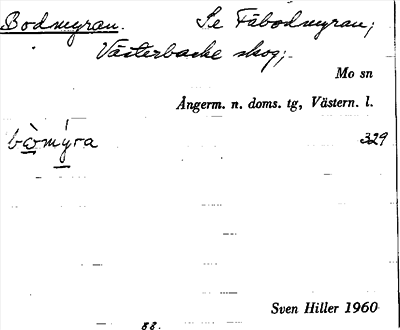 Bodmyran. Se Fäbodmyran;
Västerbacke skog;
Mo sn
Ångerm. n. doms. tg, Västern. l.
bòmýra 329
Sven Hiller 1960
88.